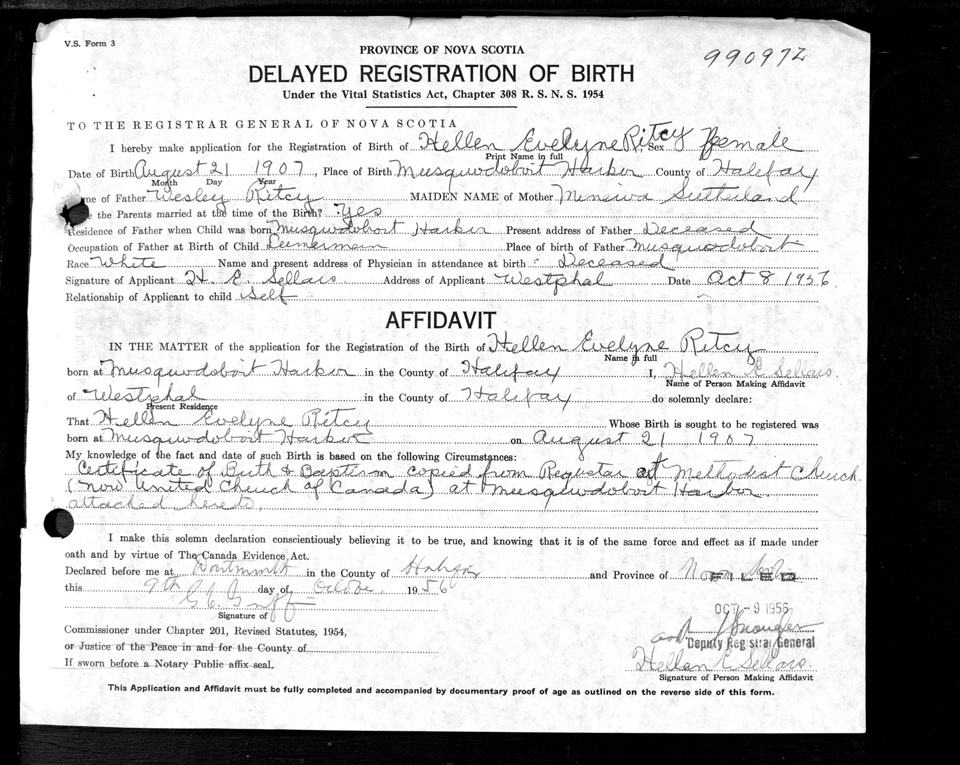 V.S. Form 3
990972
PROVINCE OF NOVA SCOTIA
DELAYED REGISTRATION OF BIRTH
Under the Vital Statistics Act, Chapter 308 R. S. N. S. 1954
TO THE REGISTRAR GENERAL OF NOVA SCOTIA
I hereby make application for the Registration of Birth of Hellen Evelyne Ritcy, Sex Female
Print Name in full
Date of Birth August 21 1907, Place of Birth Musquodoboit Harbor County of Halifax
Month Day Year
me of Father Wesley Ritcy MAIDEN NAME of Mother Minerva Sutherland
the Parents married at the time of the Birth? Yes
Residence of Father when Child was born Musquodoboit Harbor Present address of Father Deceased
Occupation of Father at Birth of Child Place of birth of Father Musquodoboit
Race White Name and present address of Physician in attendance at birth - Deceased
Signature of Applicant H. E. Sellars Address of Applicant Westphal Date Oct 8 1956
Relationship of Applicant to child Self
AFFIDAVIT
IN THE MATTER of the application for the Registration of the Birth of Hellen Evelyne Ritcy
Name in full
born at Musquodoboit Harbor in the County of Halifax I, Hellen E Sellars
Name of Person Making Affidavit
of Westphal in the County of Halifax do solemnly declare:
Present Residence
That Hellen Evelyne Ritcy Whose Birth is sought to be registered was
born at Musquodoboit Harbor on August 21 1907
My knowledge of the fact and date of such Birth is based on the following Circumstances:
Certificate of Birth & Baptism copied from Registar at Methodist Church
(now United Church of Canada) at Musquodoboit Harbor
attached hereto.
I make this solemn declaration conscientiously believing it to be true, and knowing that it is of the same force and effect as if made under
oath and by virtue of The Canada Evidence Act.
Declared before me at Dartmouth in the County of Halifax and Province of Nova Scotia
this 9th day of October 1956
OCT - 9 1956
Signature of
Commissioner under Chapter 201, Revised Statutes, 1954,
Deputy Registrar General
or Justice of the Peace in and for the County of
If sworn before a Notary Public affix seal.
Hellen E Sellars
Signature of Person Making Affidavit
This Application and Affidavit must be fully completed and accompanied by documentary proof of age as outlined on the reverse side of this form.